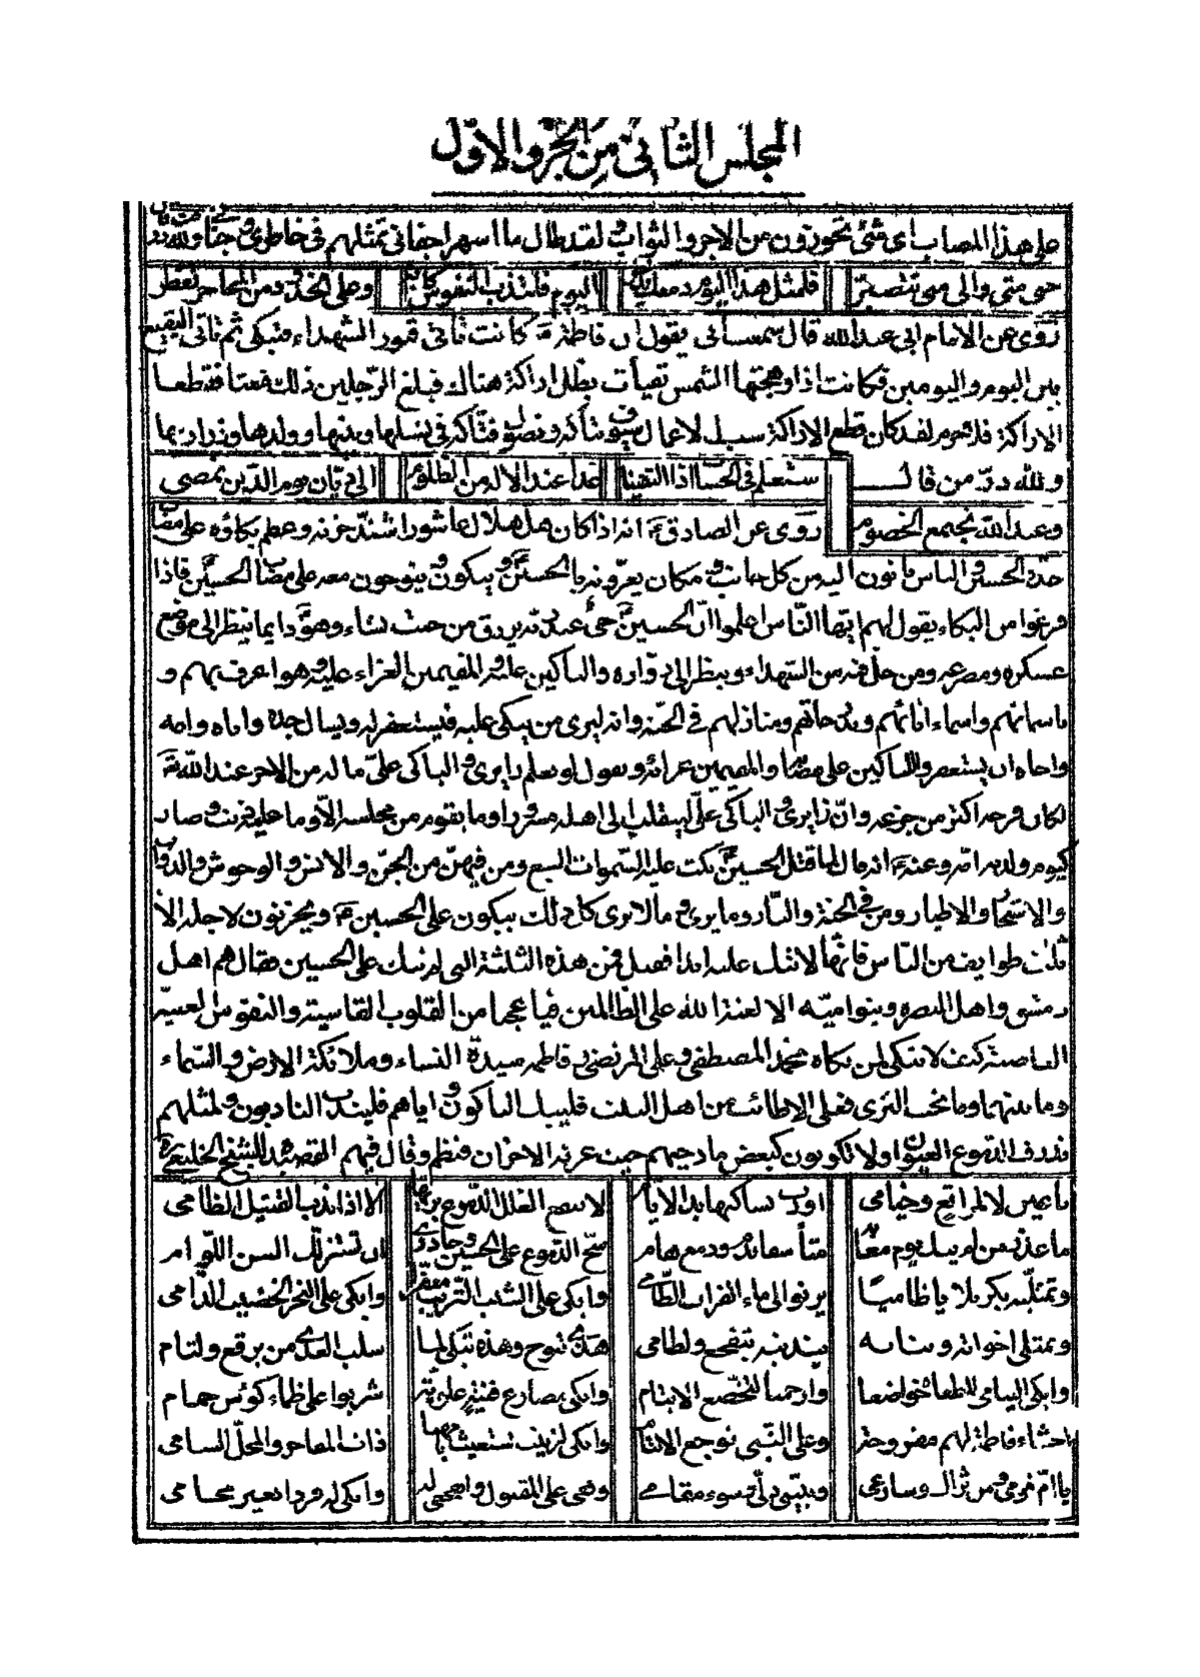 المجلس الثاني من الجزو الاول
على هذا المصاب اى شئ تحوزون من الاجر والثواب لقد طال ما اسهر اجفانى تمثلهم في خاطرى ولله در
حتى متى والى متى تتصبر فلمثل هذا اليوم دمعك اليوم فلتذب النفوس وعلى الخدود من المحاجر تقطر
روى عن الامام ابى عبد الله قال سمعت ابى يقول ان فاطمة كانت تأتى قبور الشهداء فتبكى ثم تأتى البقيع
بين اليوم واليومين فكانت اذا وهجتها الشمس تفيأت بظل اراكة هناك فبلغ الرجلين ذلك فبعثا فقطعا
الاراكة فلا جرم لقد كان قطع الاراكة سببا لاعمال في نسلها وبنيها وولدها وذراريها
ولله در من قال ستعلم في الحساب اذا التقينا غدا عند الاله من الظلوم الى ديان يوم الدين نمضى
وعند الله تجتمع الخصوم روى عن الصادق انه اذا كان هل هلال عاشورا اشتد حزنه وعظم بكاؤه على مصاب
جده الحسين والناس يأتون اليه من كل جانب ومكان يعزونه بالحسين ويبكون وينوحون معه على مصاب الحسين فاذا
فرغوا من البكاء يقول لهم ايها الناس اعلموا ان الحسين حى عند ربه يرزق من حيث يشاء وهو دايما ينظر الى موضع
عسكره ومصرعه ومن حل فيه من الشهداء وينظر الى زواره والباكين عليه والمقيمين العزاء عليه وهو اعرف بهم و
باسمائهم واسماء ابائهم وبدرجاتهم ومنازلهم في الجنة وانه ليرى من يبكى عليه فيستغفر له ويسال جده واباه وامه
واخاه ان يستغفروا للباكين على مصابه والمقيمين عزائه ويقول لو يعلم زايرى والباكى على ما له من الاجر عند الله
لكان فرحه اكثر من جزعه وان زايرى والباكى على لينقلب الى اهله مسرورا وما يقوم من مجلسه الا وما عليه ذنب وصار
كيوم ولدته امه وعنه انه قال لما قتل الحسين بكت عليه السموات السبع ومن فيهن من الجن والانس والوحوش والدواب
والاشجار والاطيار ومن في الجنة والنار وما يرى وما لا يرى كل ذلك يبكون على الحسين ويحزنون لاجله الا
ثلاث طوايف من الناس فانها لا تبك عليه ابدا فقيل فمن هذه الثلثة التى لم تبك على الحسين فقال هم اهل
دمشق واهل البصرة وبنو امية الا لعنة الله على الظالمين فيا عجبا من القلوب القاسية والنفوس
كيف لا تبكى لمن بكاه محمد المصطفى وعلى المرتضى وفاطمة سيدة النساء وملائكة الارض والسماء
وما بينهما وما تحت الثرى فعلى الاطائب من اهل البيت فليبك الباكون واياهم فليندب النادبون ولمثلهم
تذرف الدموع من العيون اولا تكونون كبعض مادحيهم حيث عرته الاحزان فنظم وقال فيهم القصيدة للشيخ الخليعى
ما عين لا لمرابع وخيامى لا تسفح الدموع الا اذا ندب القتيل الظامى
ما عذر من لم يبك يوم سح الدموع على الحسين ان تستزلك السن اللوام
وتمثليه بكربلا يا ظاميا يرنو الى ماء الفرات الطامى وابكى على الشيب التريب وابكى على النحر الخضيب الدامى
وتمثلى اخواته وبناته يندبنه بتفجع ولطام هذى تنوح وهذه تبكى لها سلب العدى من برقع ولثام
وابكى اليتامى خواضعا وارحمتا لتخضع الايتام وابكى مصارع فتية شربوا على ظماء كؤس حمام
احشاء فاطمة لهم مقروحة وعلى النبى توجع وابكى لزينب تستغيث بامها ذات المفاخر والمحل السامى
يا ام قومى من ثراك وسارعى وتبينى ذلى وسوء مقامى وابكى له فردا بغير محامى